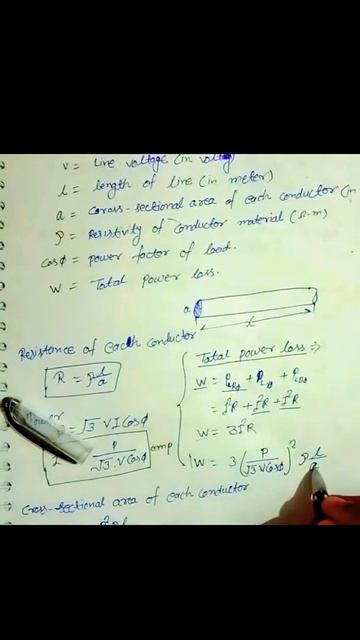 V = Line voltage (in volts)
l = length of line (in meter)
a = corss-sectional area of each conductor (in
ρ = Resistivity of conductor material (Ω-m)
cosφ = power factor of load.
W = Total power loss.
a
l
Resistance of each conductor
R = ρ l/a
Power
P = √3 V I Cosφ
I = P/√3.V Cosφ amp
Total power loss ⇒
W = + +
= I²R + I²R + I²R
W = 3I²R
W = 3 (P/√3 V Cosφ)² ρ l/a
Cross-sectional area of each conductor